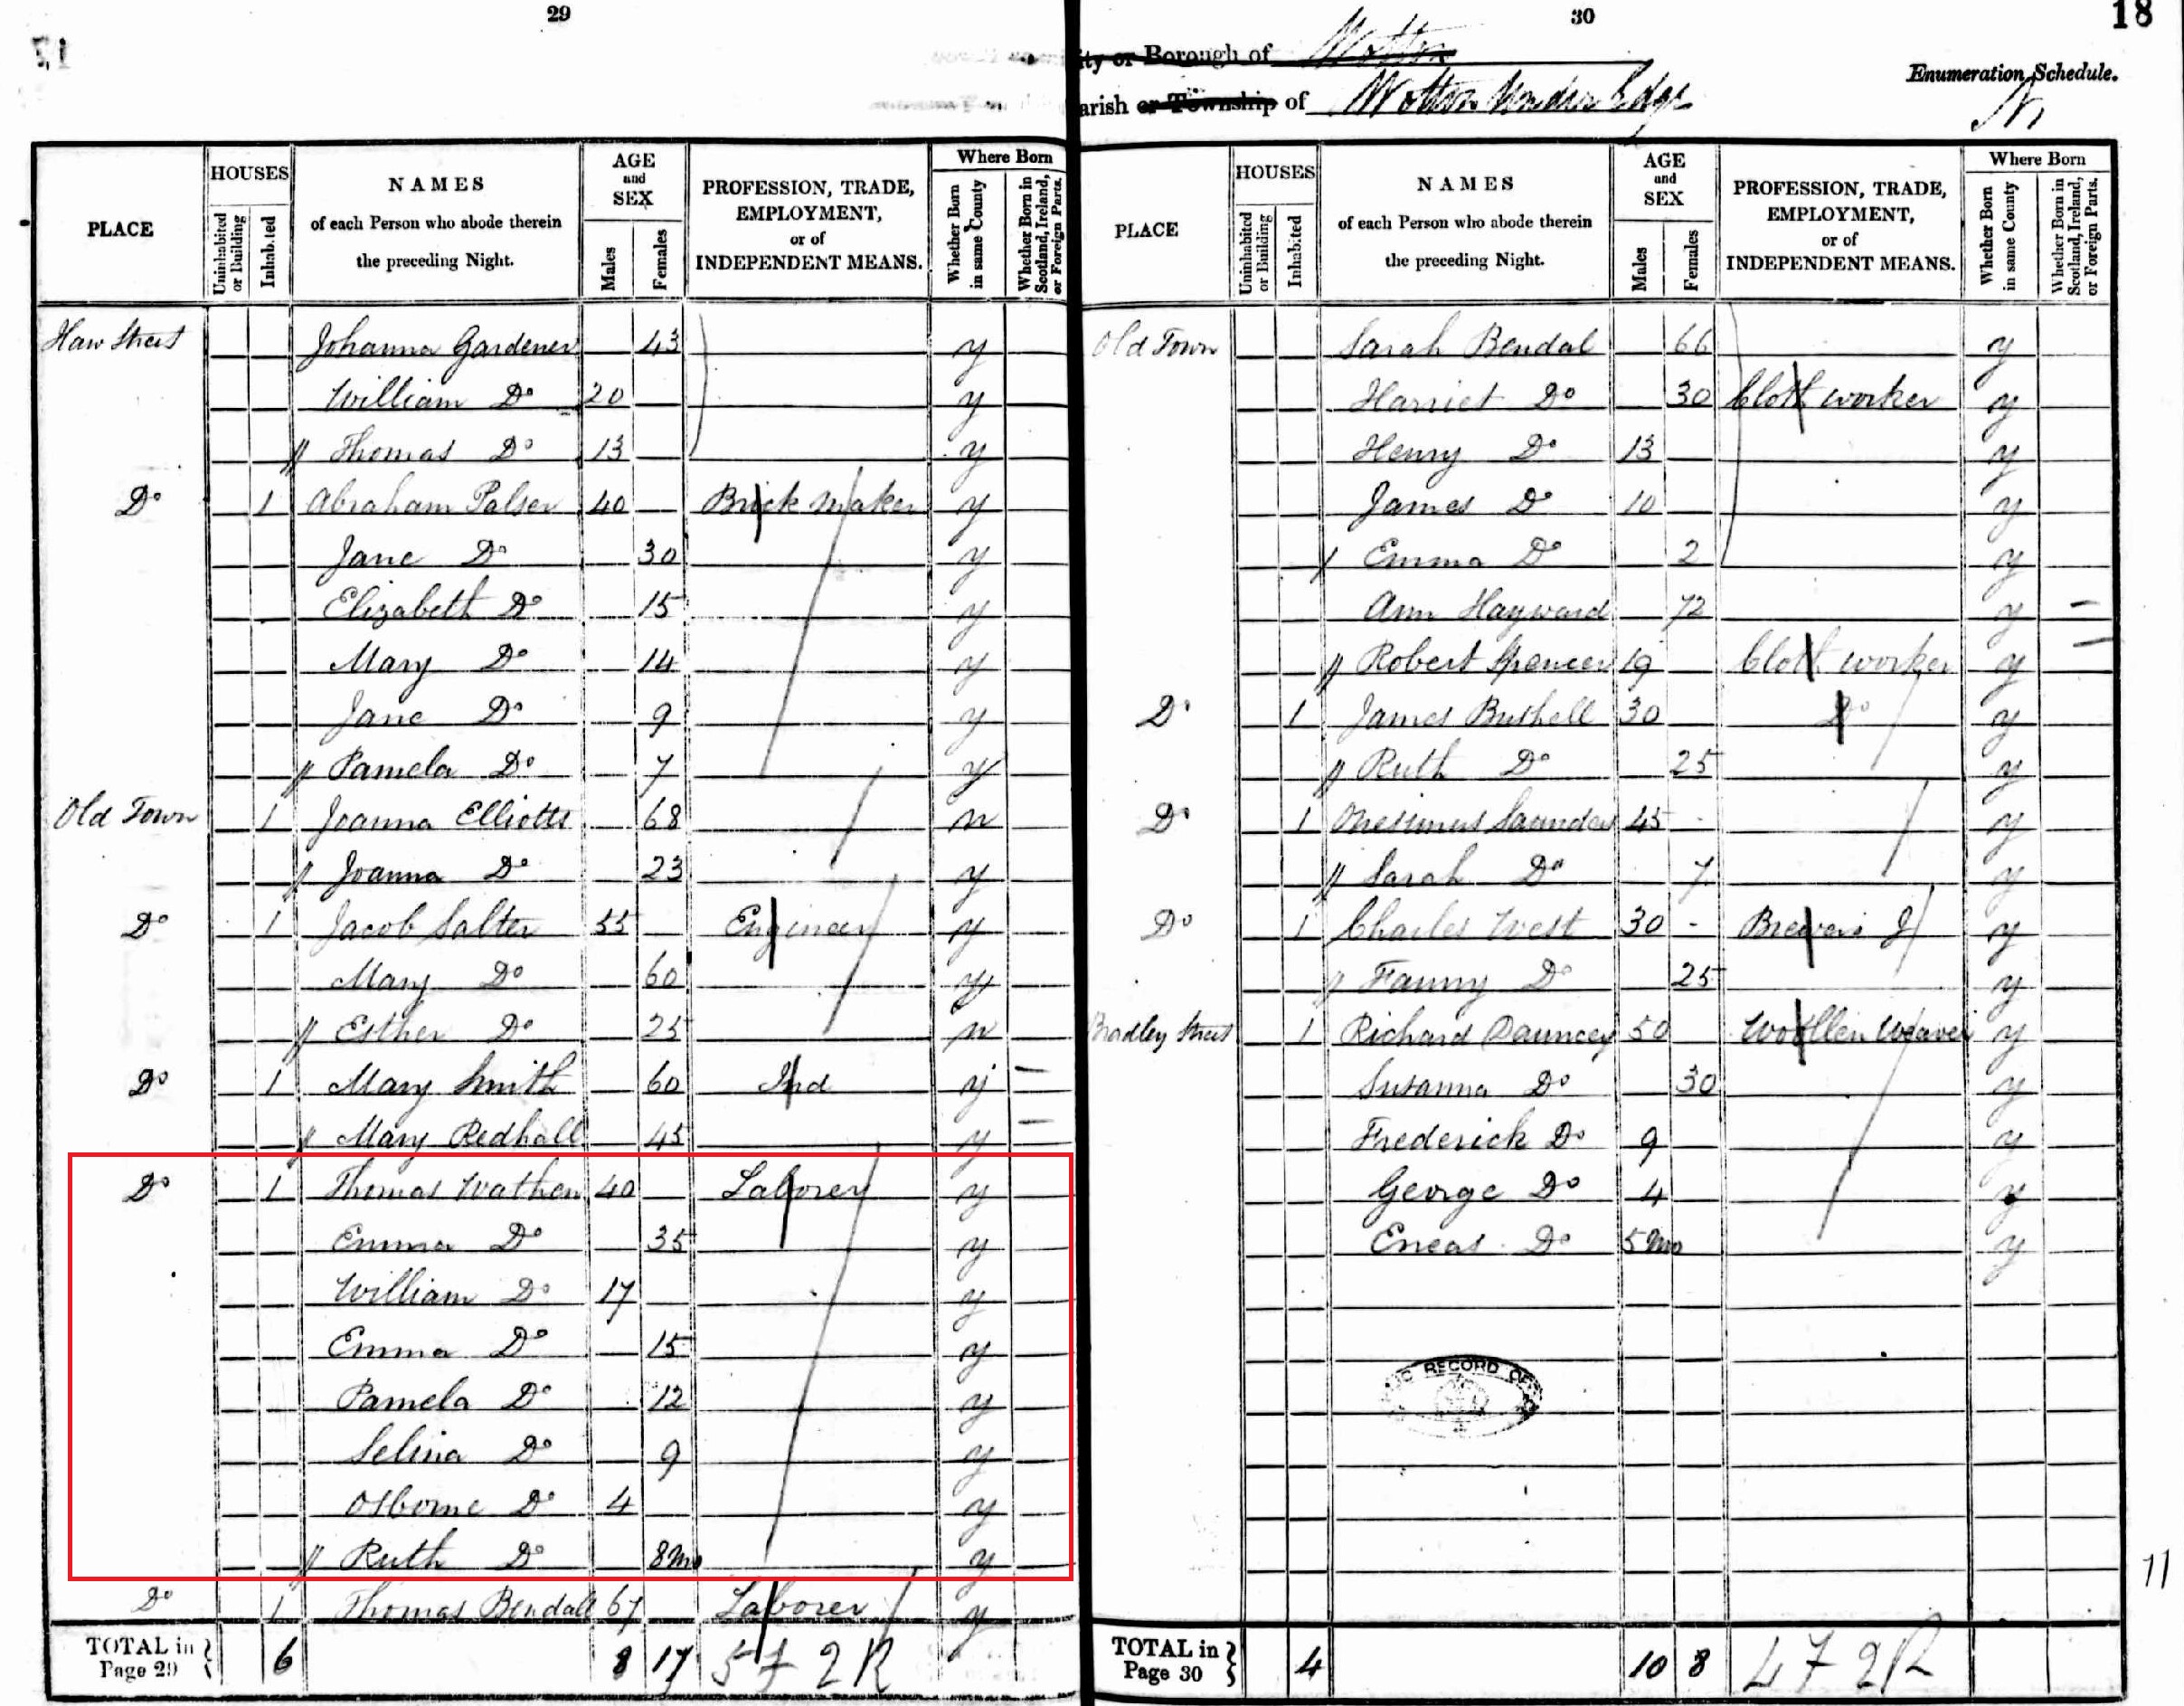 29
30
18
City or Borough of Wotton
Parish or Township of Wotton Under Edge
Enumeration Schedule.
PLACE
HOUSES
Uninhabited or Building
Inhabited
NAMES of each Person who abode therein the preceding Night.
AGE and SEX
Males
Females
PROFESSION, TRADE, EMPLOYMENT, or of INDEPENDENT MEANS.
Where Born
Whether Born in same County
Whether Born in Scotland, Ireland, or Foreign Parts.
Haw Street Johanna Gardener 43 y
William Do 20 y
// Thomas Do 13 y
Do 1 Abraham Palser 40 Brick Maker y
Jane Do 30 y
Elizabeth Do 15 y
Mary Do 14 y
Jane Do 9 y
// Pamela Do 7 y
Old Town 1 Joanna Elliotts 68 n
// Joanna Do 23 y
Do 1 Jacob Salter 55 Engineer y
Mary Do 60 y
// Esther Do 25 n
Do 1 Mary Smith 60 Ind y –
// Mary Redhall 45 y –
Do 1 Thomas Wathen 40 Laborer y
Emma Do 35 y
William Do 17 y
Emma Do 15 y
Pamela Do 12 y
Selina Do 9 y
Osborne Do 4 y
// Ruth Do 8 Mo y
Do 1 Thomas Bendall 67 Laborer y
TOTAL in Page 29 } 6 8 17 57 2R
PLACE
HOUSES
Uninhabited or Building
Inhabited
NAMES of each Person who abode therein the preceding Night.
AGE and SEX
Males
Females
PROFESSION, TRADE, EMPLOYMENT, or of INDEPENDENT MEANS.
Where Born
Whether Born in same County
Whether Born in Scotland, Ireland, or Foreign Parts.
Old Town Sarah Bendal 66 y
Harriet Do 30 Cloth worker y
Henry Do 13 y
James Do 10 y
/ Emma Do 2 y
Ann Hayward 72 y –
// Robert Spencer 19 Cloth worker y –
Do 1 James Bushell 30 Do y
// Ruth Do 25 y
Do 1 Onesimus Saunders 45 y
// Sarah Do 7 y
Do 1 Charles West 30 - Brewers J y
// Fanny Do 25 y
Bradley Street 1 Richard Dauncey 50 Woollen Weaver y
Susanna Do 30 y
Frederick Do 9 y
George Do 4 y
Eneas Do 5 Mo y
RECORD
11
TOTAL in Page 30 } 4 10 8 47 2R